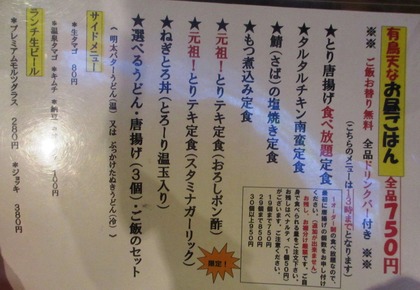 有鳥天なお昼ごはん 全品750円
※※ ご飯お替り無料 全品ドリンクバー付き ※※
(こちらのメニューは13時までとなります)
★とり唐揚げ食べ放題定食
★タルタルチキン南蛮定食
★鯖(さば)の塩焼き定食
★もつ煮込み定食
★元祖!とりテキ定食(おろしポン酢)
★元祖!とりテキ定食(スタミナガーリック)
限定!
★ねぎとろ丼(とろーり温玉入り)
★選べるうどん・唐揚げ(3個)・ご飯のセット
(明太バターうどん(温)又は ぶっかけたぬきうどん(冷))
サイドメニュー
*生タマゴ 80円
*温泉タマゴ *キムチ *納豆 100円
ランチ生ビール
*プレミアムモルツグラス 280円 *ジョッキ 380円